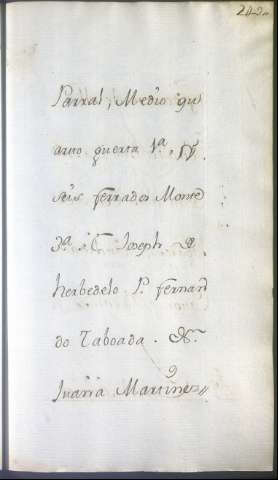 Parral, Medio qu
arto querta 1ª, y
seis ferrados Monte
3ª. C. Joseph D
herbedelo P. Fernan
do Taboada. N.
Juana Martine